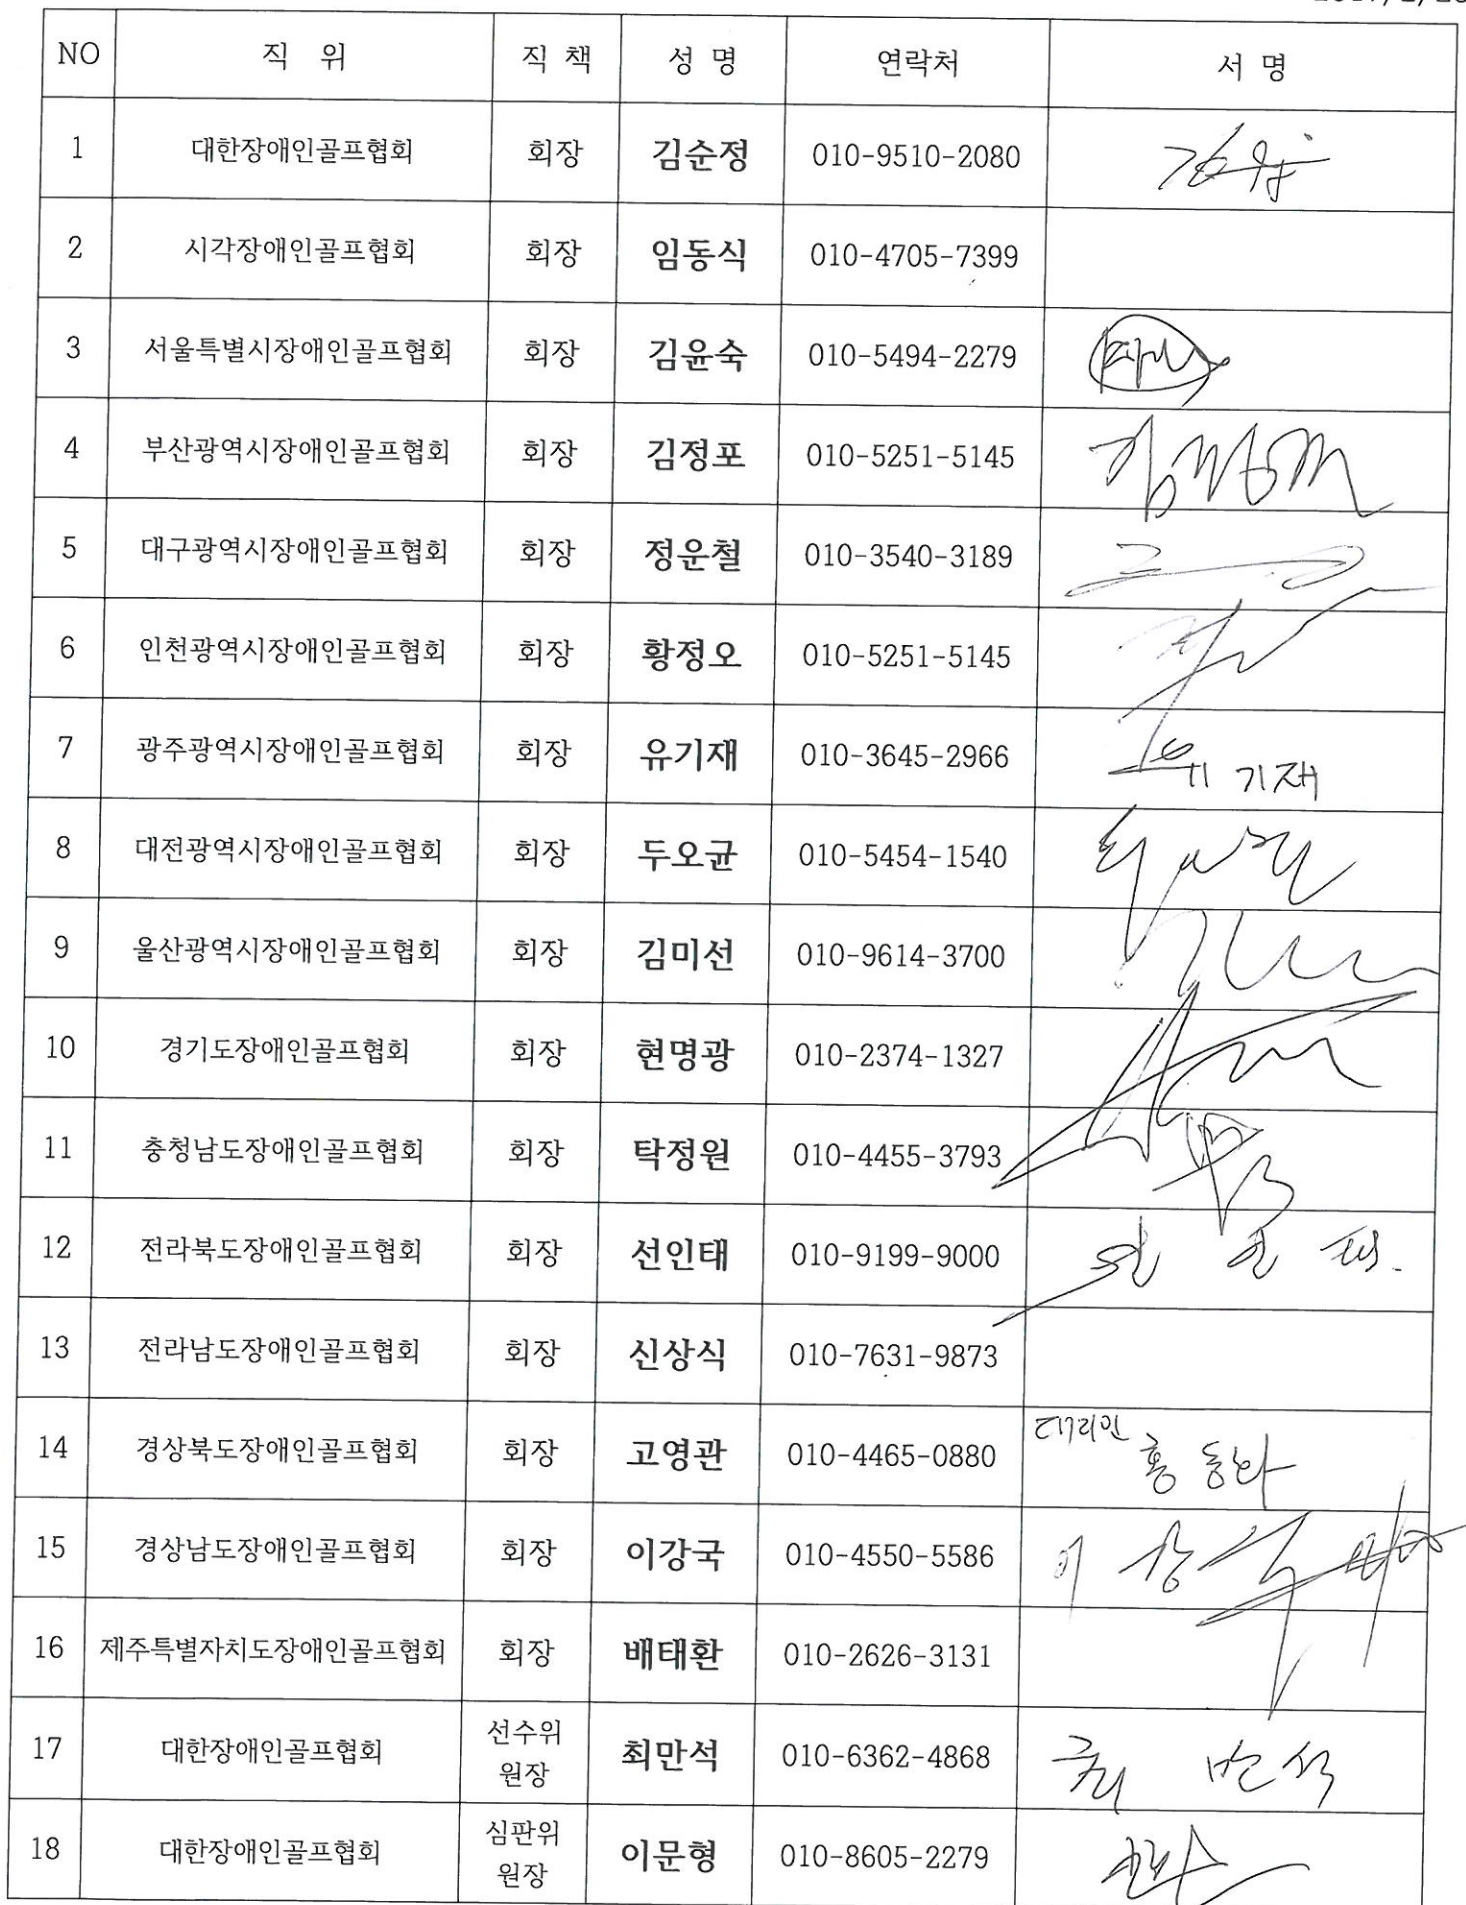 NO 직 위 직 책 성 명 연락처 서 명
1 대한장애인골프협회 회장 김순정 010-9510-2080
2 시각장애인골프협회 회장 임동식 010-4705-7399
3 서울특별시장애인골프협회 회장 김윤숙 010-5494-2279
4 부산광역시장애인골프협회 회장 김정포 010-5251-5145
5 대구광역시장애인골프협회 회장 정운철 010-3540-3189
6 인천광역시장애인골프협회 회장 황정오 010-5251-5145
7 광주광역시장애인골프협회 회장 유기재 010-3645-2966 유기재
8 대전광역시장애인골프협회 회장 두오균 010-5454-1540
9 울산광역시장애인골프협회 회장 김미선 010-9614-3700
10 경기도장애인골프협회 회장 현명광 010-2374-1327
11 충청남도장애인골프협회 회장 탁정원 010-4455-3793
12 전라북도장애인골프협회 회장 선인태 010-9199-9000 선인태
13 전라남도장애인골프협회 회장 신상식 010-7631-9873
14 경상북도장애인골프협회 회장 고영관 010-4465-0880 대리인
15 경상남도장애인골프협회 회장 이강국 010-4550-5586 이강국
16 제주특별자치도장애인골프협회 회장 배태환 010-2626-3131
17 대한장애인골프협회 선수위 최만석 010-6362-4868 최만석
원장
18 대한장애인골프협회 심판위 이문형 010-8605-2279
원장